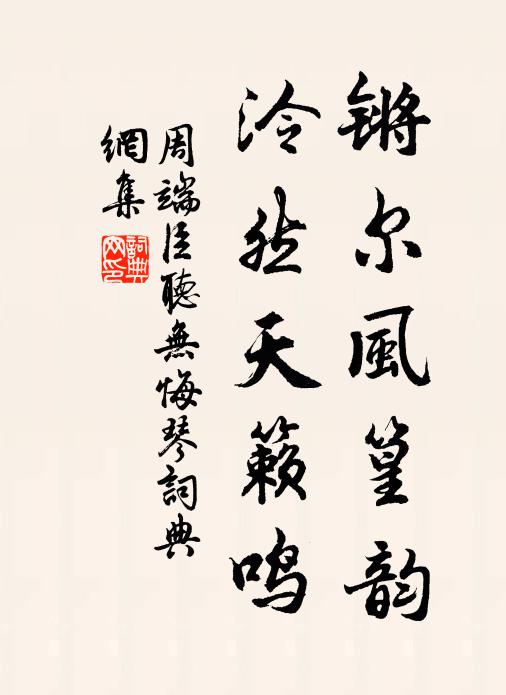 锵尔風篁韵
泠然天籟鸣
周端臣聽無悔琴詞典
網集
詞典
网印